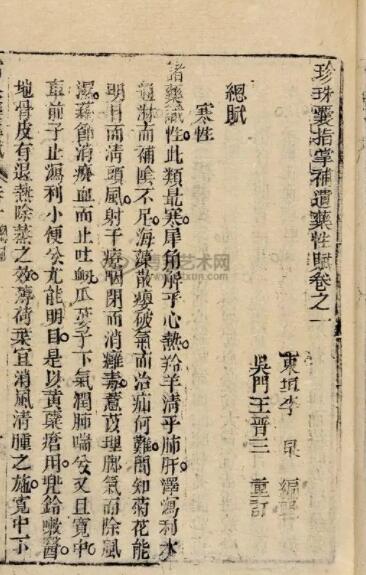 珍珠囊指掌補遺藥性賦卷之一
東垣李杲編輯
吳門王晉三重訂
總賦
寒性
諸藥賦性此類最寒犀角解乎心熱羚羊清乎肺肝澤瀉利水
通淋而補陰不足海藻散癭破氣而治疝何難聞知菊花能
明目而清頭風射干療咽閉而消癰毒薏苡理腳氣而除風
濕藕節消瘀血而止吐衄瓜蔞子下氣潤肺喘兮又且寬中
車前子止瀉利小便兮尤能明目是以黃蘗瘡用兜鈴嗽醫
地骨皮有退熱除蒸之效薄荷葉宜消風清腫之施寬中下
博宝艺术网